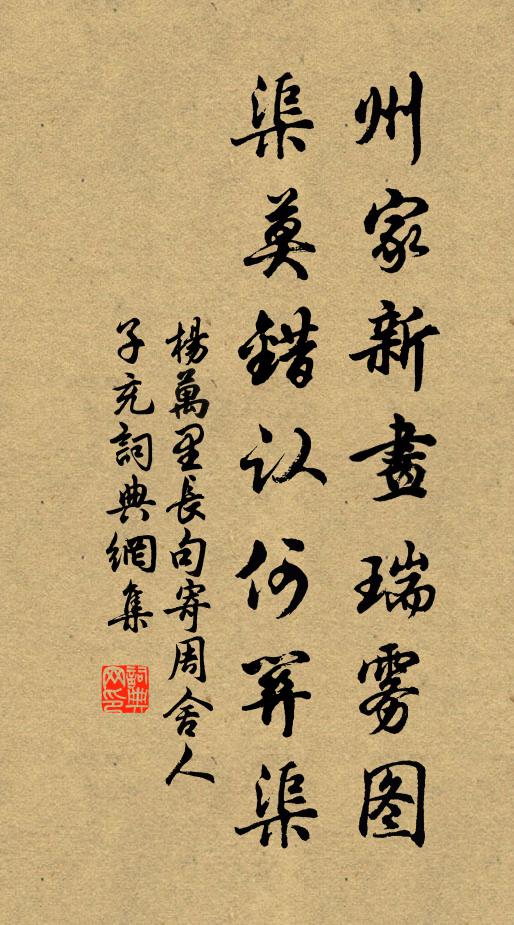 州家新畫瑞雾图
渠莫錯认何渠
楊萬里長句寄周舍人
子充詞典網集
詞典网印